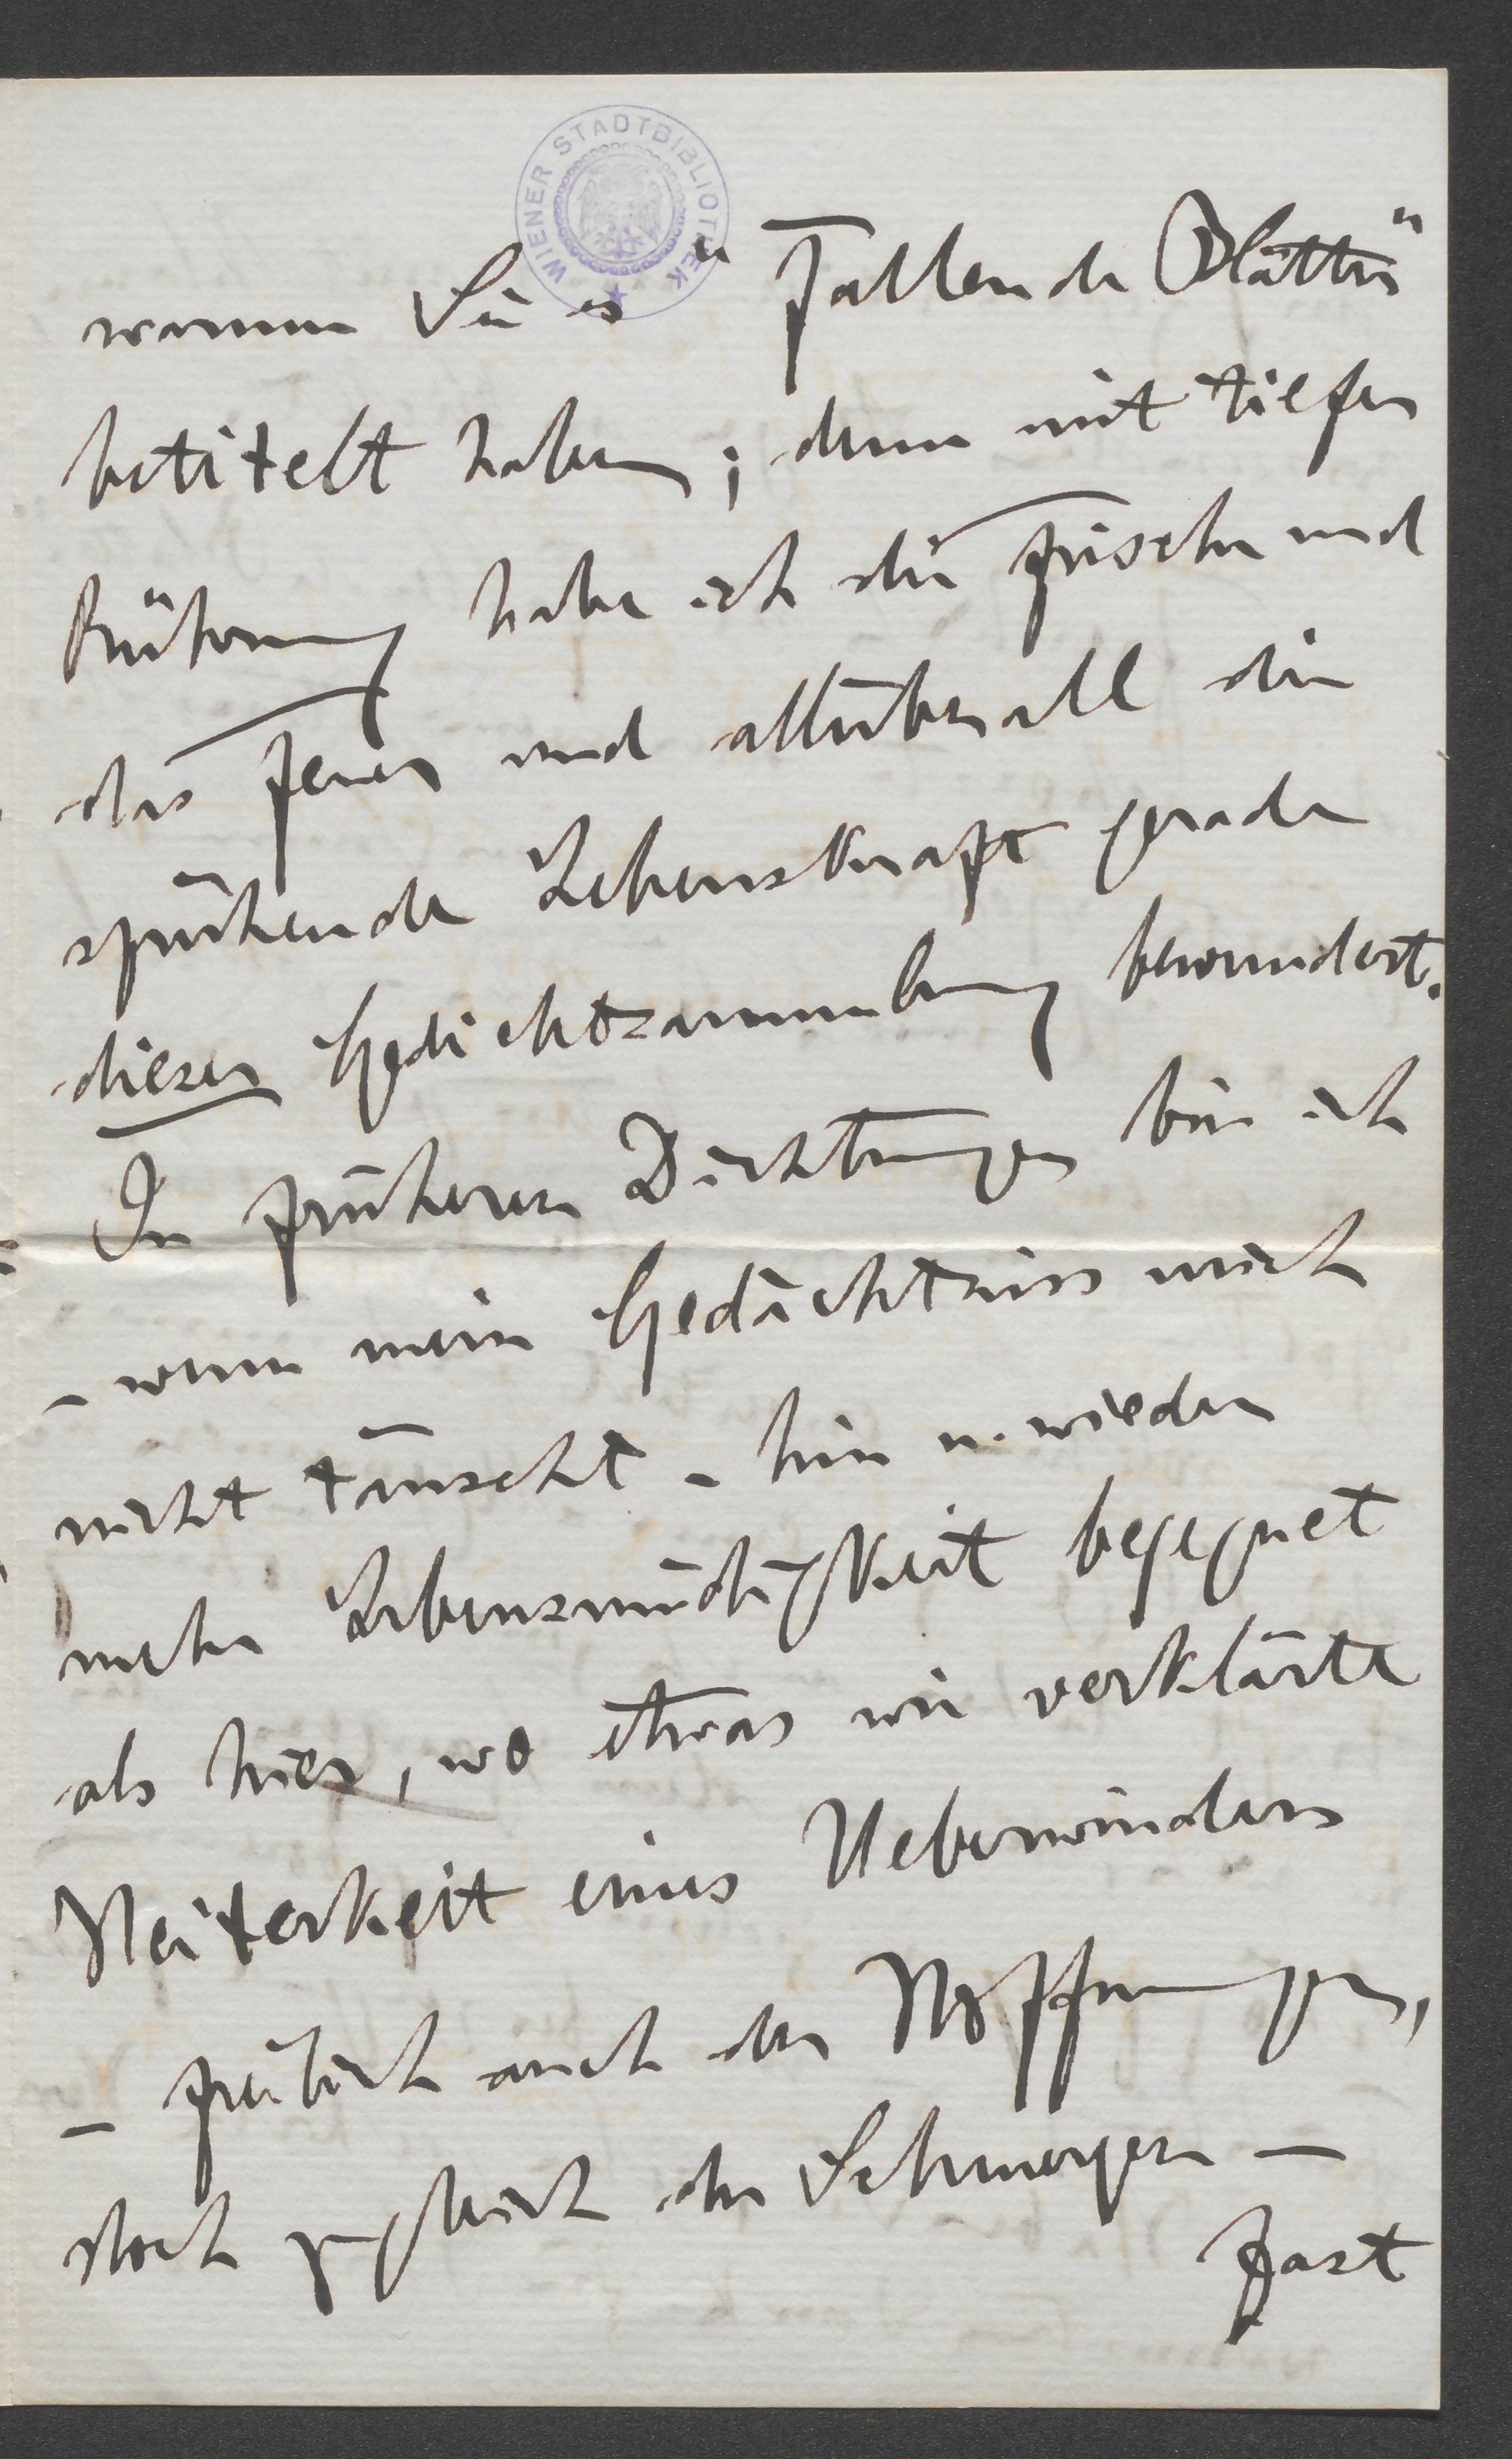 WIENER STADTBIBLIOTHEK
warum Sie es "Fallende Blätter"
betitelt haben; denn mit tiefer
Rührung habe ich die Frische und
das Feuer und allüberall die
sprühende Lebenskraft gerade
dieser Gedichtsammlung bewundert.
In früheren Dichtungen bin ich
– wenn mein Gedächtniss mich
nicht täuscht – hin u. wieder
mehr Lebensmüdigkeit begegnet
als hier, wo etwas wie verklärte
Heiterkeit eines Ueberwinders
– freilich auch der Hoffnungen,
doch zugleich der Schmerzen –
fast